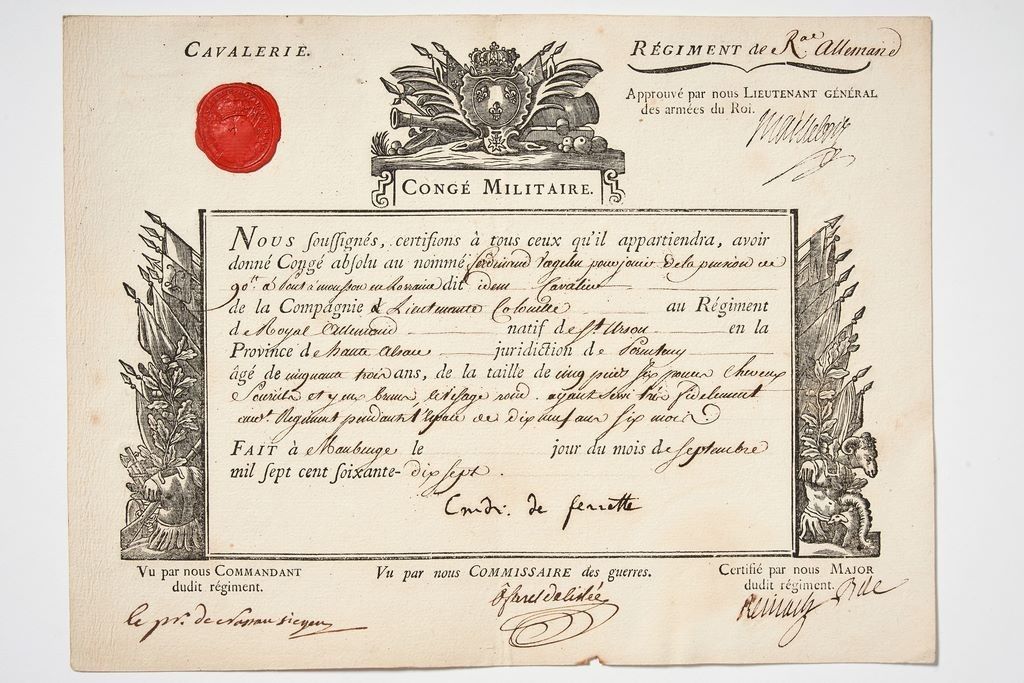 CAVALERIE.
RÉGIMENT de R.ae Allemand
Approuvé par nous LIEUTENANT GÉNÉRAL
des armées du Roi.
Maillebois
CONGÉ MILITAIRE.
NOUS souſſignés, certifions à tous ceux qu'il appartiendra, avoir
donné Congé abſolu au nommé ferdinand Vogelin pour jouir de la pension de
90tt à Pont à mousson en Lorraine dit idem Cavalier
de la Compagnie d Lieutenante Colonelle au Régiment
de Royal Allemand natif de St. Urson en la
Province de haute alsace juridiction de
âgé de cinquante trois ans, de la taille de cinq pieds six pouces Cheveux
et yeux bruns le visage rond. ayant servi très fidelement
au d. Régiment pendant l'espace de dix neuf ans six mois
FAIT à Maubeuge le jour du mois de Septembre
mil ſept cent ſoixante- dix sept.
Cmdr. de ferrette
Vu par nous COMMANDANT
dudit régiment.
le pr. de nassau siegen
Vu par nous COMMISSAIRE des guerres.
Certifié par nous MAJOR
dudit régiment.
Reinach